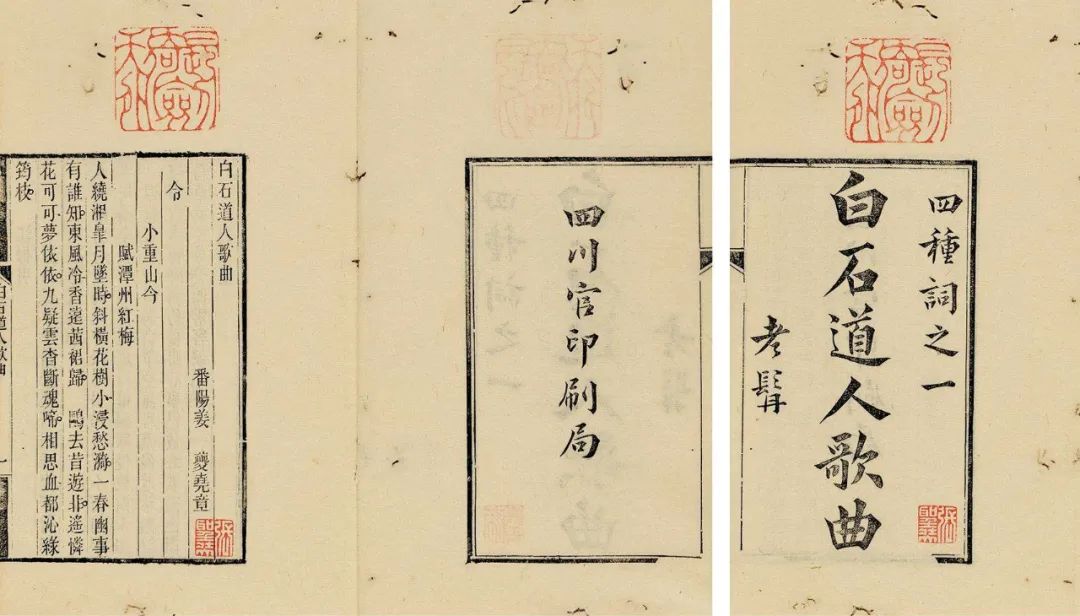 四種詞之一
白石道人歌曲
老髯
四川官印刷局
白石道人歌曲
番陽姜　夔堯章
令
小重山令
賦潭州紅梅
人繞湘皐月墜時。斜橫花樹小浸愁漪。一春幽事
有誰知。東風冷香遠茜裙歸。　鷗去昔遊非。遙憐
花可可夢依依。九疑雲杳斷魂啼。相思血都沁綠
筠枝。
白石道人歌曲
一